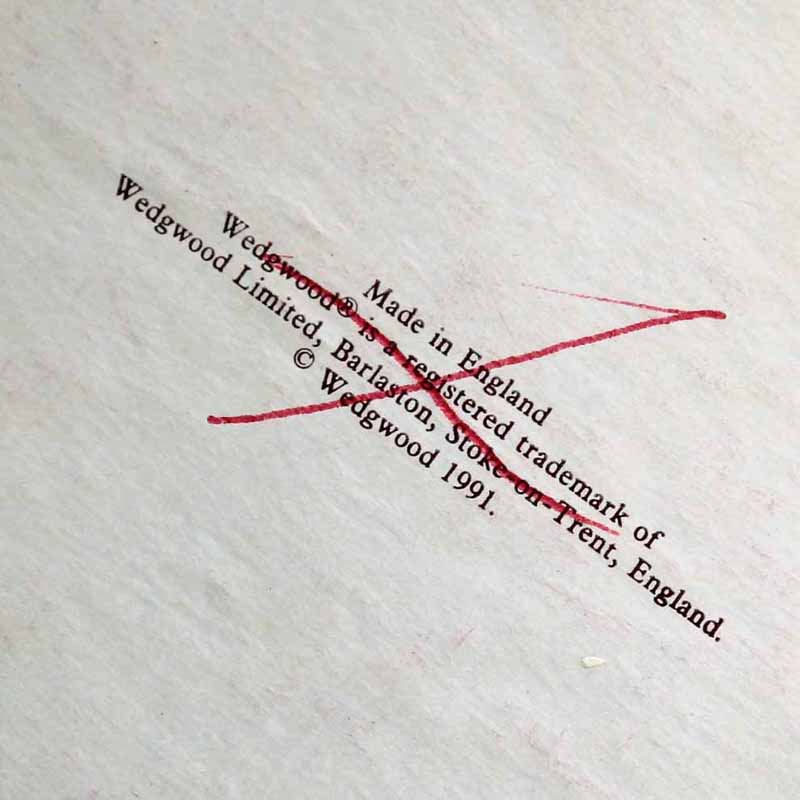 Made in England
Wedgwood® is a registered trademark of
Wedgwood Limited, Barlaston, Stoke-on-Trent, England.
© Wedgwood 1991.